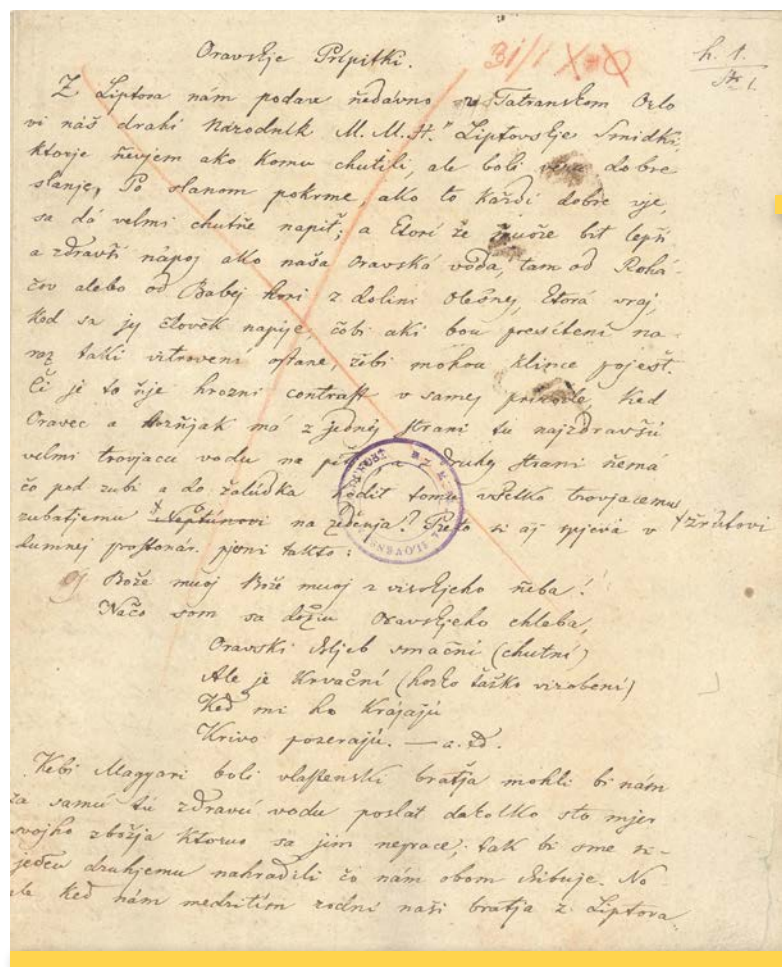 Oravskje Prípitki.
31/1
h. 1.
Z Liptova nám podav ňedávno v Tatranskom Orlo
vi náš drahí Národník M. M. H. "Liptovskje Smidki,
ktorje ňevjem ako komu chutili, ale boli veru dobre
slanje, Po slanom pokrme, ako to každí dobre vje,
sa dá velmi chutňe napiť; a ktorí že muože biť lepší
a zdravší nápoj ako naša Oravská voda, tam od Rohá-
čov alebo od Babej hori z dolini Olešnej, ktorá vraj,
ked sa jej človek napije, čobi akí bou presítení na
raz takí vitrovení ostane, žebi mohou klince pojesť.
Či je to ňje hrozní contrast v samej prírode, ked
Oravec a Horňjak má z jednej strani tú najzdravšú
velmi trovjacu vodu na piťja, z druhej strani ňemá
čo pod zubi a do žalúdka hodiť tomu všetko trovjacemu
zubatjemu Neptúnovi na zedenja? Preto si aj spjeva v žrútovi
dumnej prostonár. pjesni takto:
Bože muoj Bože muoj z visokjeho ňeba!
Načo som sa dožiu Oravskjeho chleba,
Oravski chljeb smační (chutní)
Ale je krvační (horko ťažko virobení)
Keď mi ho krájajú
Krivo pozerajú. — a. tď.
Kebi Magyari boli vlastenski bratja mohli bi nám
za samú tú zdravú vodu poslať dakolko sto mjer
svojho zbožja ktoruo sa jim neprace; tak bi sme si
jeden druhjemu nahradili čo nám obom chibuje. No
ale keď nám medzitím rodní naši bratja z Liptova